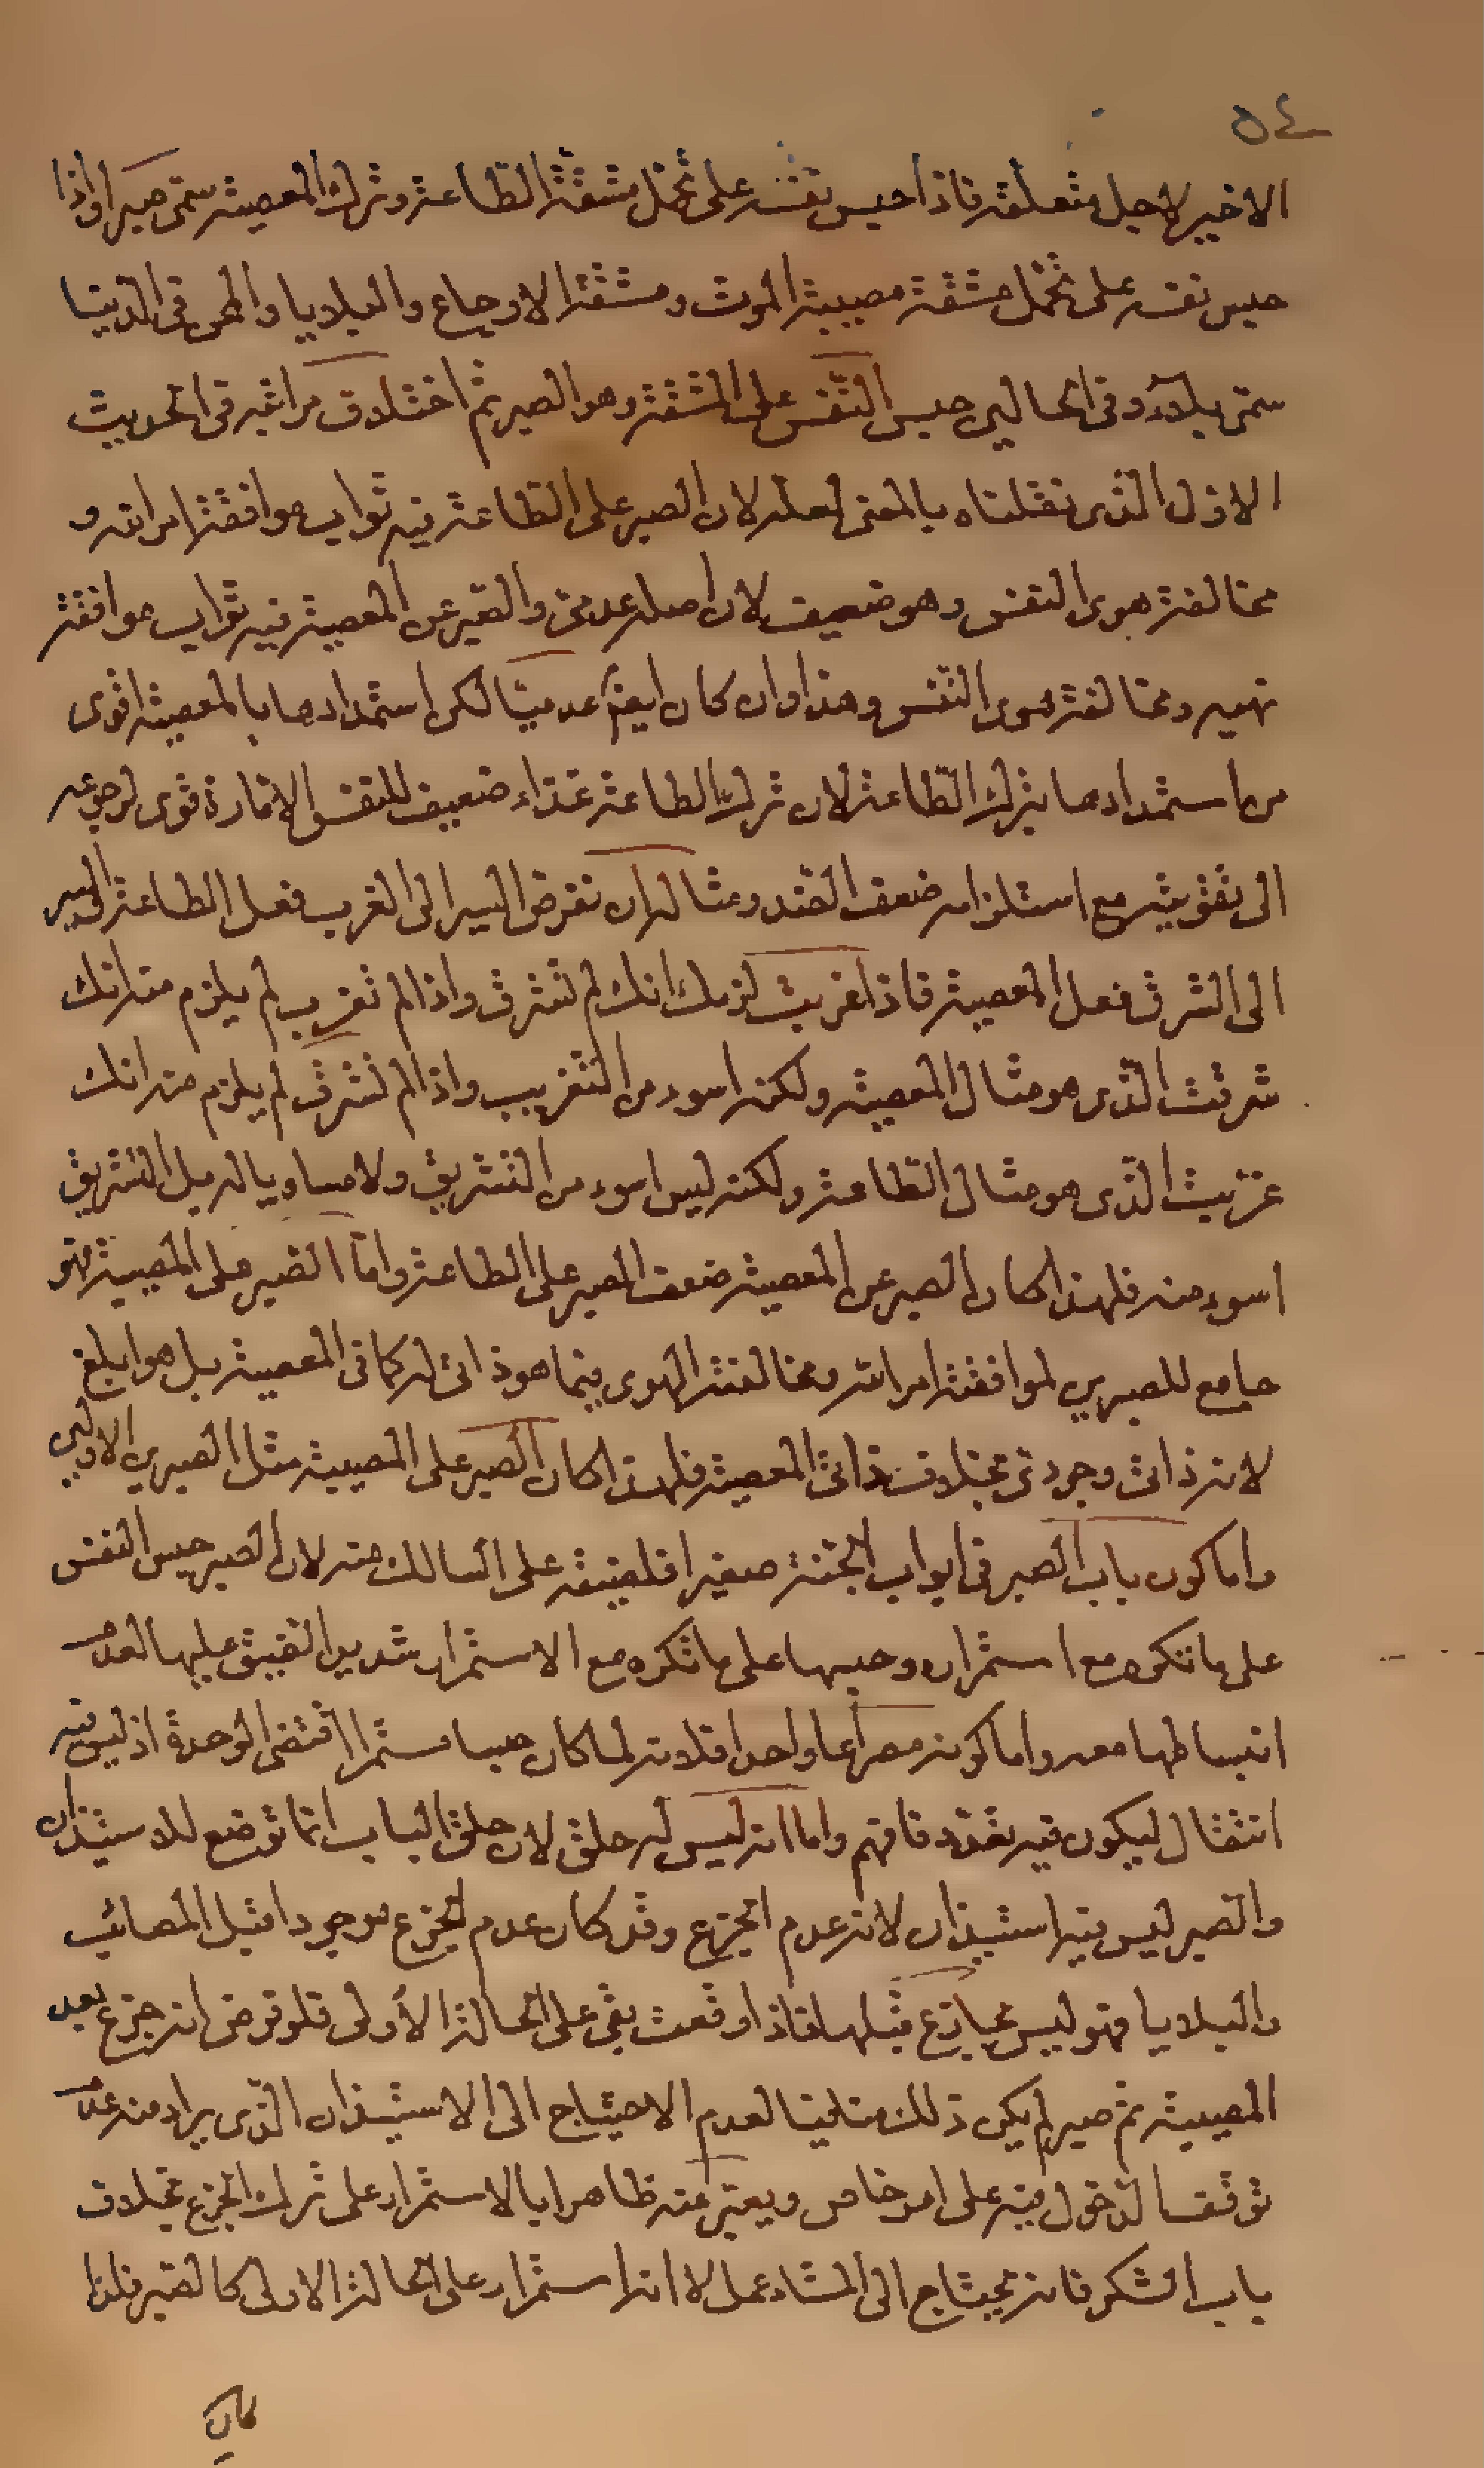 ٥٤
الاخير لاجل متعلقه فاذا حبس نفسه على تحمل مشقة الطاعة وترك المعصية سمّى صبرا واذا
حبس نفسه على تحمل مشقة مصيبة الموت ومشقة الاوجاع والبلايا والمحن فى الدنيا
سمّى بلاء وفى الحالين حبس النفس على المشقة وهو الصبر ثم اختلاف مراتبه فى الحديث
الاول الذى نقلناه بالمعنى لعله لان الصبر على الطاعة فيه ثواب موافقة امر الله و
مخالفة هوى النفس وهو ضعيف لان اصله عدمى والصبر عن المعصية فيه ثواب موافقة
نهيه ومخالفة هوى النفس وهذا وان كان ايضا عدميّا لكن استمدادها بالمعصية اقوى
من استمدادها بترك الطاعة لان ترك الطاعة غذاء ضعيف للنفس الامّارة قوى لرجوعه
الى تقويته مع استلزامه ضعف الضد ومثاله ان نفرض السير الى الغرب فعل الطاعة والسير
الى الشرق فعل المعصية فاذا غربت لزمك انك لم تشرق واذا لم تغرب لم يلزم منه انك
شرقت الّذى هو مثال المعصية ولكنه اسوء من التغريب واذا لم تشرق لم يلزم منه انك
غربت الّذى هو مثال الطاعة ولكنه ليس اسوء من التشريق ولا مساويا له بل التشريق
اسوء منه فلهذا كان الصبر عن المعصية ضعف الصبر على الطاعة وامّا الصبر على المصيبة فهو
جامع للصبرين لموافقة امر الله ومخالفة الهوى فيما هو ذاتى له كما فى المعصية بل هو ابلغ
لانه ذاتى وجودى بخلاف ذاتى المعصية فلهذا كان الصبر على المصيبة مثل الصبرين الاولين
واما كون باب الصبر فى ابواب الجنة صغيرا فلضيقه على السالك منه لان الصبر حبس النفس
على ما تكره مع استمراره وحبسها على ما تكره مع الاستمرار شديد الضيق عليها لعدم
انبساطها معه واما كونه مصراعا واحدا فلانه لما كان حبسا مستمرا اقتضى الوحدة اذ ليس فيه
انتقال ليكون فيه تعدّد فافهم واما انه ليس له حلق لان حلق الباب انما توضع للاستيذان
والصبر ليس فيه استيذان لانه عدم الجزع وقد كان عدم الجزع موجودا قبل المصائب
والبلايا فهو ليس بجازع قبلها فاذا وقعت بقى على الحالة الأولى فلو فرض انه جزع بعد
المصيبة ثم صبر لم يكن ذلك منافيا لعدم الاحتياج الى الاستيذان الّذى يراد منه عدم
توقف الدخول فيه على امر خاص ويعبّر عنه ظاهرا بالاستمرار على ترك الجزع بخلاف
باب الشكر فانه يحتاج الى عمل لا انه استمرار على الحالة الاولى كالصبر فلذا
كان